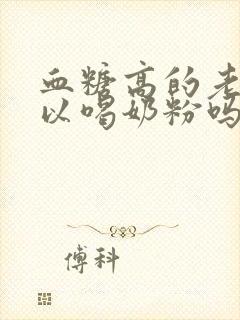 血糖高的老
以喝奶粉吗
傅科